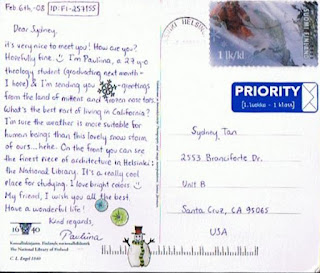 Feb 6th, -08 ID: FI-257155
Dear Sydney,
it's very nice to meet you! How are you?
Hopefully fine. I'm Pauliina, a 27 y.o
theology student (graduating next month-
I hope) & I'm sending you -greetings
from the land of mittens and frozen nose tops.
What's the best part of living in California?
I'm sure the weather is more suitable for
human beings than this lovely snow storm
of ours... hehe. On the front you can see
the finest piece of architecture in Helsinki:
the National Library. It's a really cool
place for studying. I love bright colors.
My friend, I wish you all the best.
Have a wonderful life!
Kind regards,
Pauliina
16 40
Kansalliskirjasto, Finlands nationalbibliotek
The National Library of Finland
C. L. Engel 1840
HELSINKI
1 lk/kl
PRIORITY
[1.luokka - 1 klass]
Sydney Tan
2553 Branciforte Dr.
Unit B
Santa Cruz, CA 95065
USA